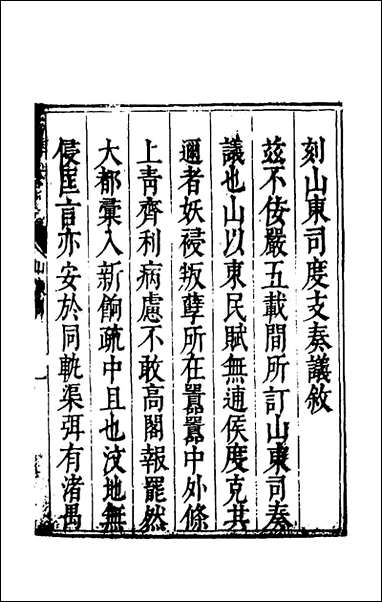 刻山東司度支奏議敘
茲不佞嚴五載間所訂山東司奏
議也山以東民賦無逋侯度克共
邇者妖祲叛孽所在囂囂中外條
上青齊利病慮不敢高閣報罷然
大都彙入新餉疏中且也汶地無
侵厓言亦安於同軌渠弭有渚禺